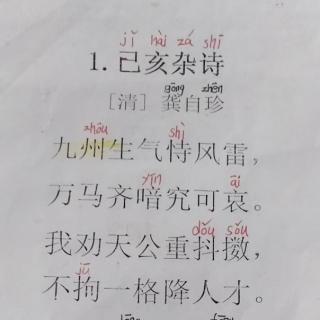 jǐ hài zá shī
1. 己亥杂诗
gōng zhēn
[清] 龚自珍
zhōu shì
九州生气恃风雷，
yīn āi
万马齐喑究可哀。
dǒu sǒu
我劝天公重抖擞，
jū
不拘一格降人才。